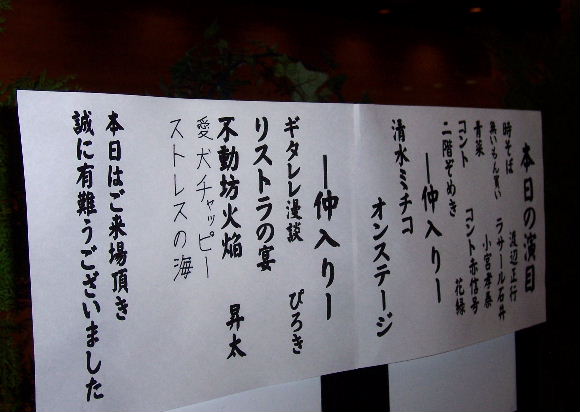 本日の演目
時そば　渡辺正行
黒いちん買い　ラサール石井
青菜　小宮孝泰
コント　コント赤信号
二階ぞめき　花緑
―仲入り―
清水ミチコ
オンステージ
―仲入り―
ギタレレ漫談　ぴろき
リストラの宴
不動坊火焔　昇太
愛犬チャッピー
ストレスの海
本日はご来場頂き
誠に有難うございました